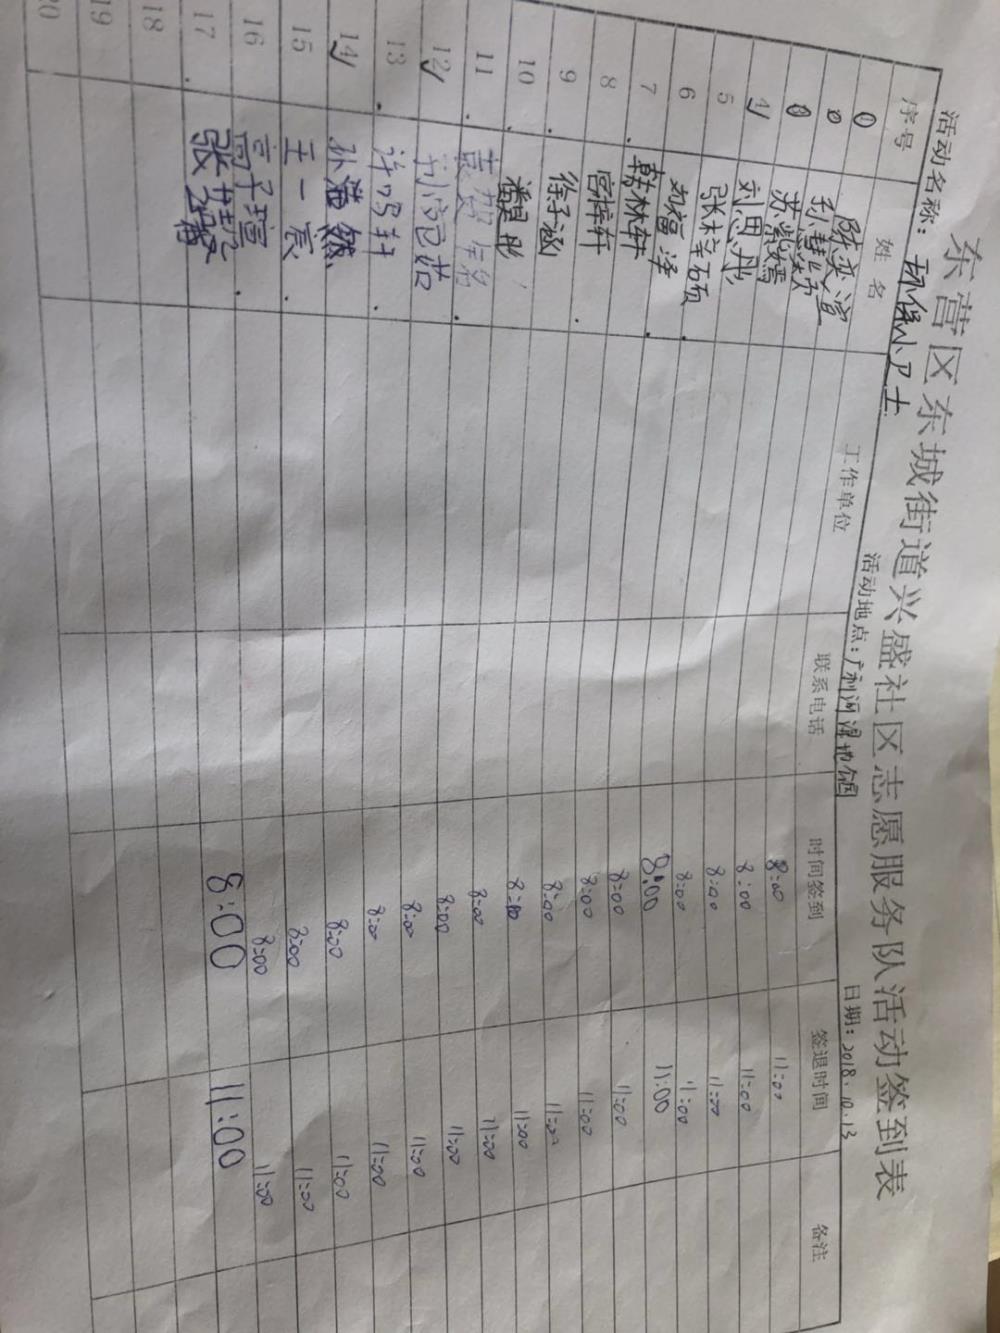 东营区东城街道兴盛社区志愿服务队活动签到表
活动名称：环保小卫士 活动地点：广利河湿地公园 日期：2018.10.13
序号 姓名 工作单位 联系电话 时间签到 签退时间 备注
陈奕渲 8:00 11:00
8:00 11:00
苏紫嫣 8:00 11:00
4 刘思彤 8:00 11:00
5 张梓硕 8:00 11:00
6 刘福泽 8:00 11:00
7 韩林轩 8:00 11:00
8 宫梓轩 8:00 11:00
9 徐子涵 8:00 11:00
10 潘昊彤 8:00 11:00
11 8:00 11:00
12 8:00 11:00
13 许鸣轩 8:00 11:00
14 孙浩然 8:00 11:00
15 王一宸 8:00 11:00
16 高子瑄 8:00 11:00
17 8:00 11:00
18
19
20